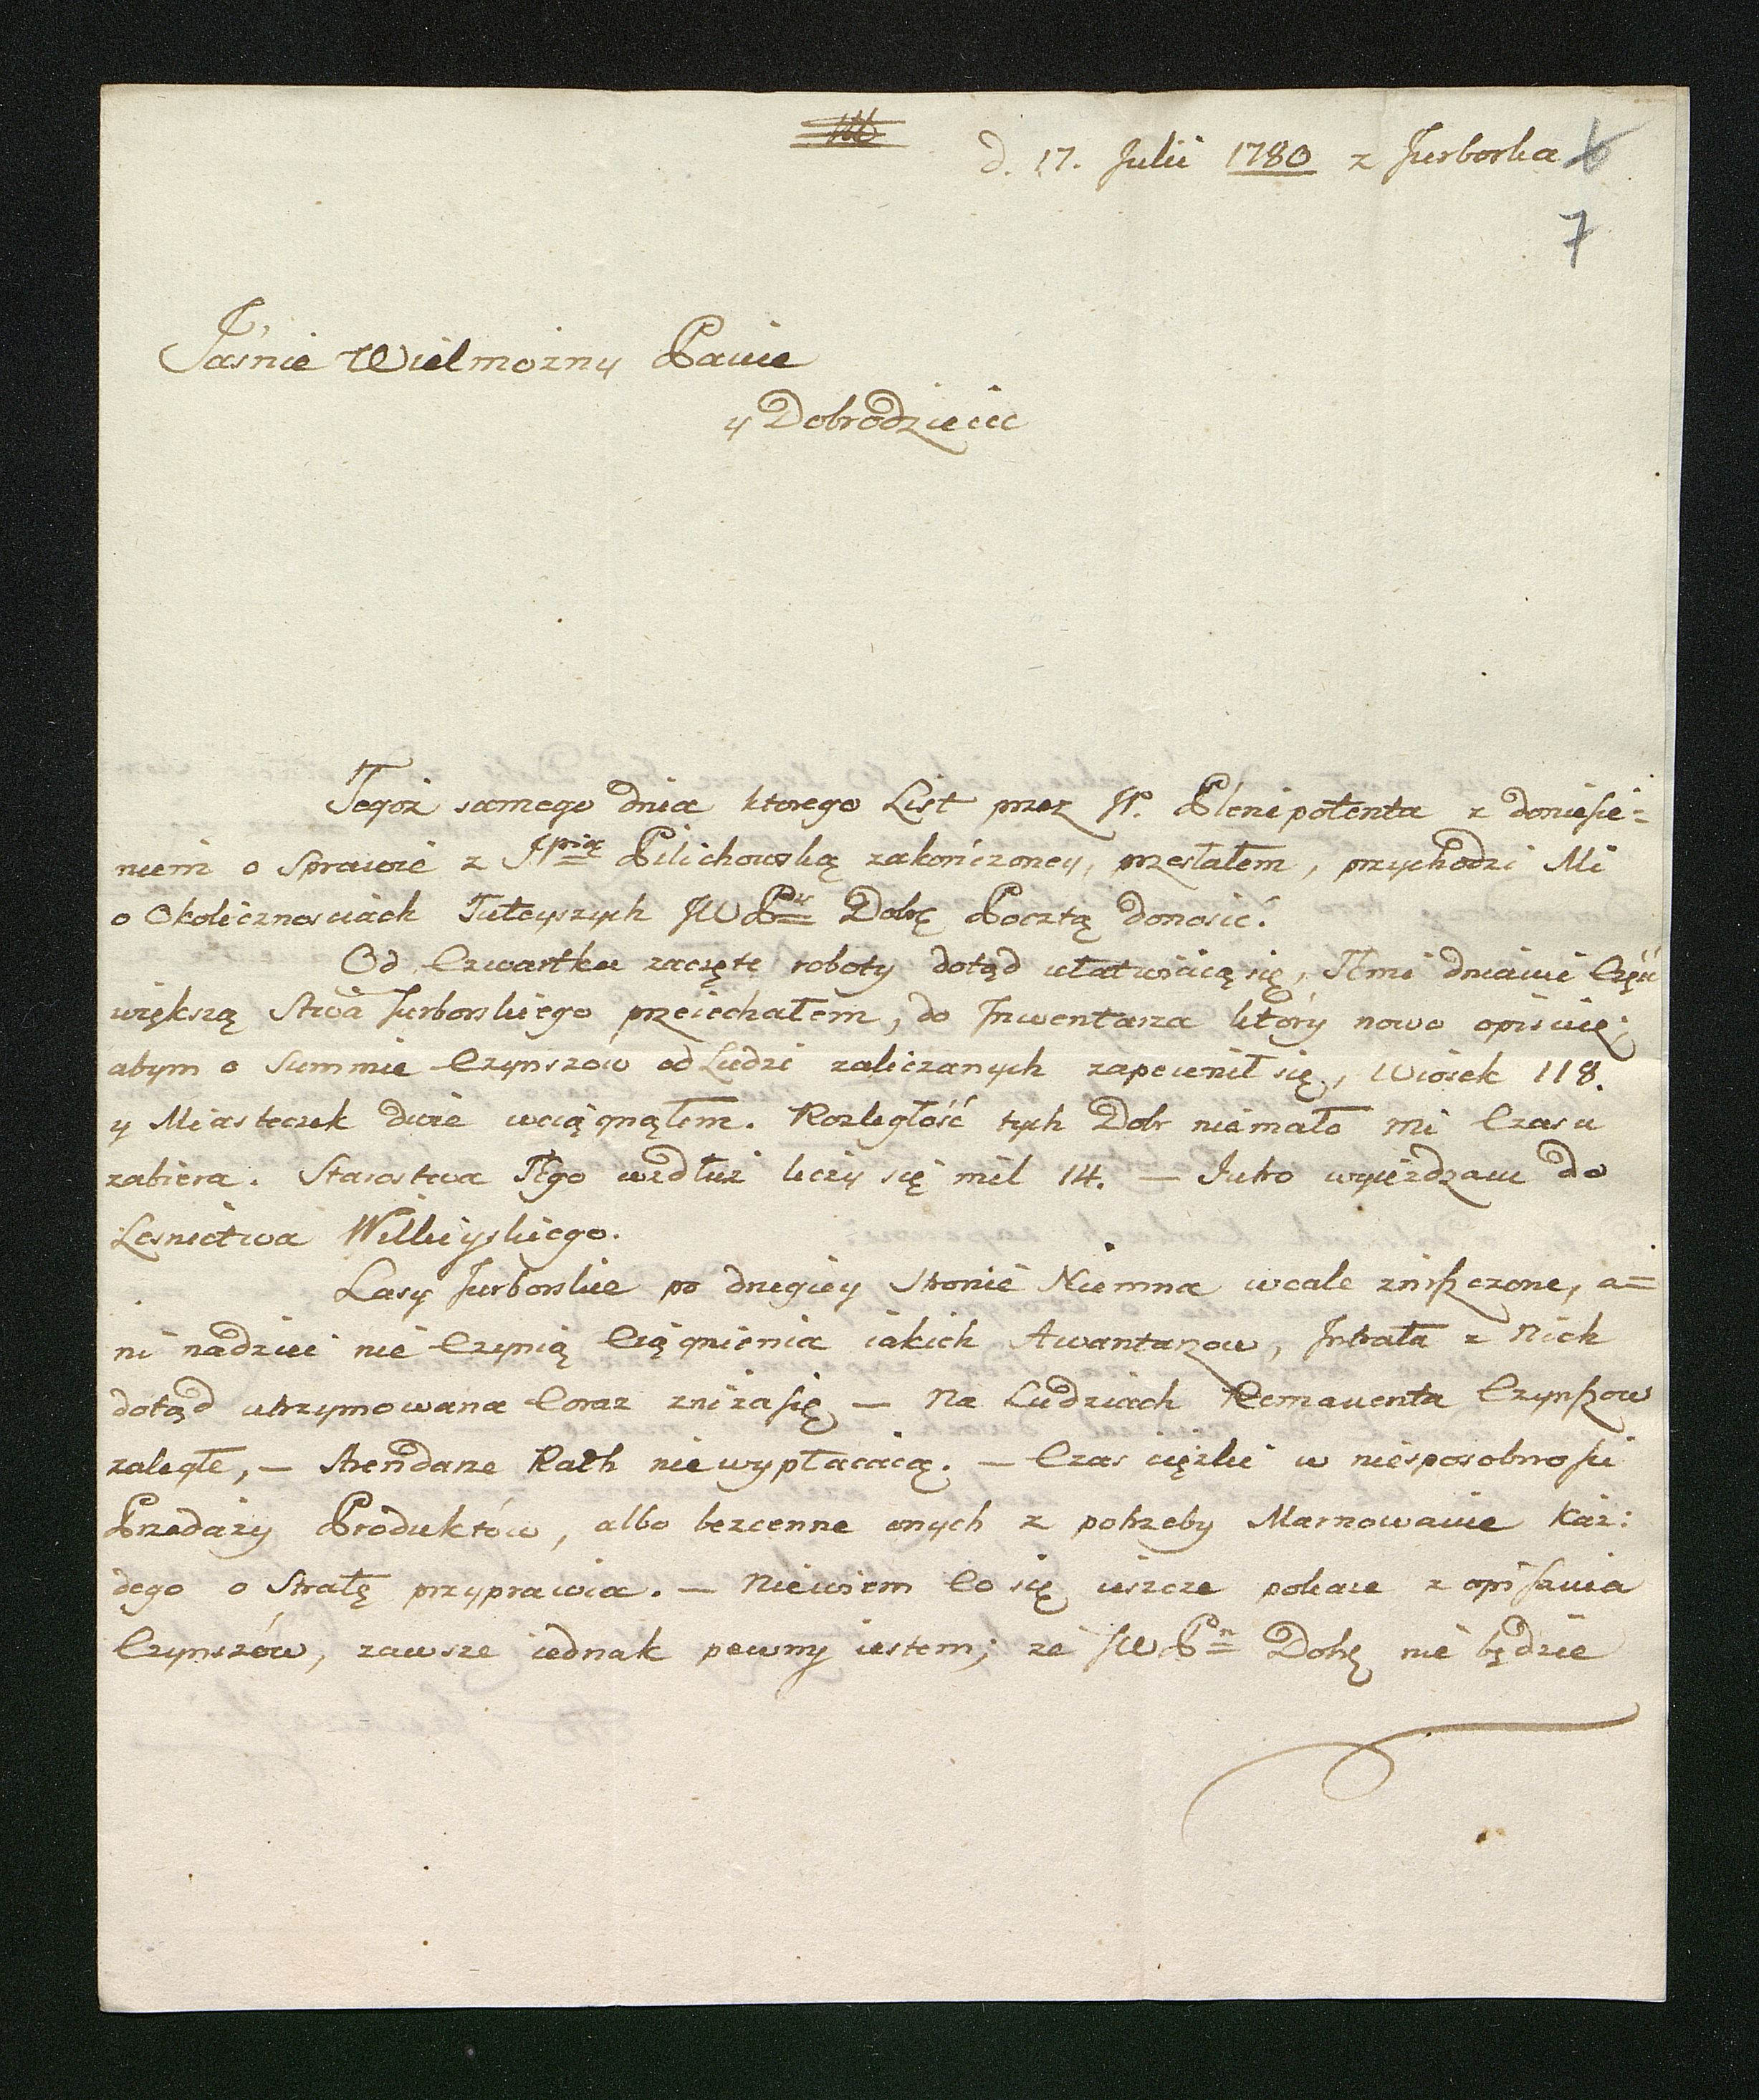 d. 17. Julii 1780 z Jurborka
7
Jaśnie Wielmożny Panie
y Dobrodzieiu
Tegoż samego dnia ktorego List przez JP. Plenipotenta z doniesie=
niem o Sprawie z Jpnią Pilichowską zakończoney, przesłałem, przychodzi Mi
o Okolicznosciach Tuteyszych JW Pu Dobr. Pocztą donosić.
Od Czwartku zaczęte roboty dotąd ułatwiaią się, Temi dniami Część
większą Stwa Jurborskiego przeiechałem, do Inwentarza który nowo opisuię;
abym o Summie Czynszow od Ludzi zaliczanych zapewnił się, Wiosek 118.
y Miasteczek dwie wciągnąłem. Rozległość tych Dobr niemało mi Czasu
zabiera. Starostwa Tego wzdłuż liczy się mil 14. — Jutro wyieżdzam do
Lesnictwa Wilkiyskiego.
Lasy Jurborskie po drugiey Stronie Niemna wcale zniszczone, a=
ni nadziei nie Czynią Ciągnienia iakich Awantarzow, Intrata z Nich
dotąd utrzymowana Coraz zniża się — Na Ludziach Remanenta Czynszow
zaległe, — Arendarze Rath niewypłacaią. — Czas ciężki w niesposobnosci
Przedaży Produktów, albo bezcenne onych z potrzeby Marnowanie Każ:
dego o Stratę przyprawia. — Niewiem Co się ieszcze pokaże z opisania
Czynszów, zawsze iednak pewny iestem; że JW Pn Dobr. nie będzie